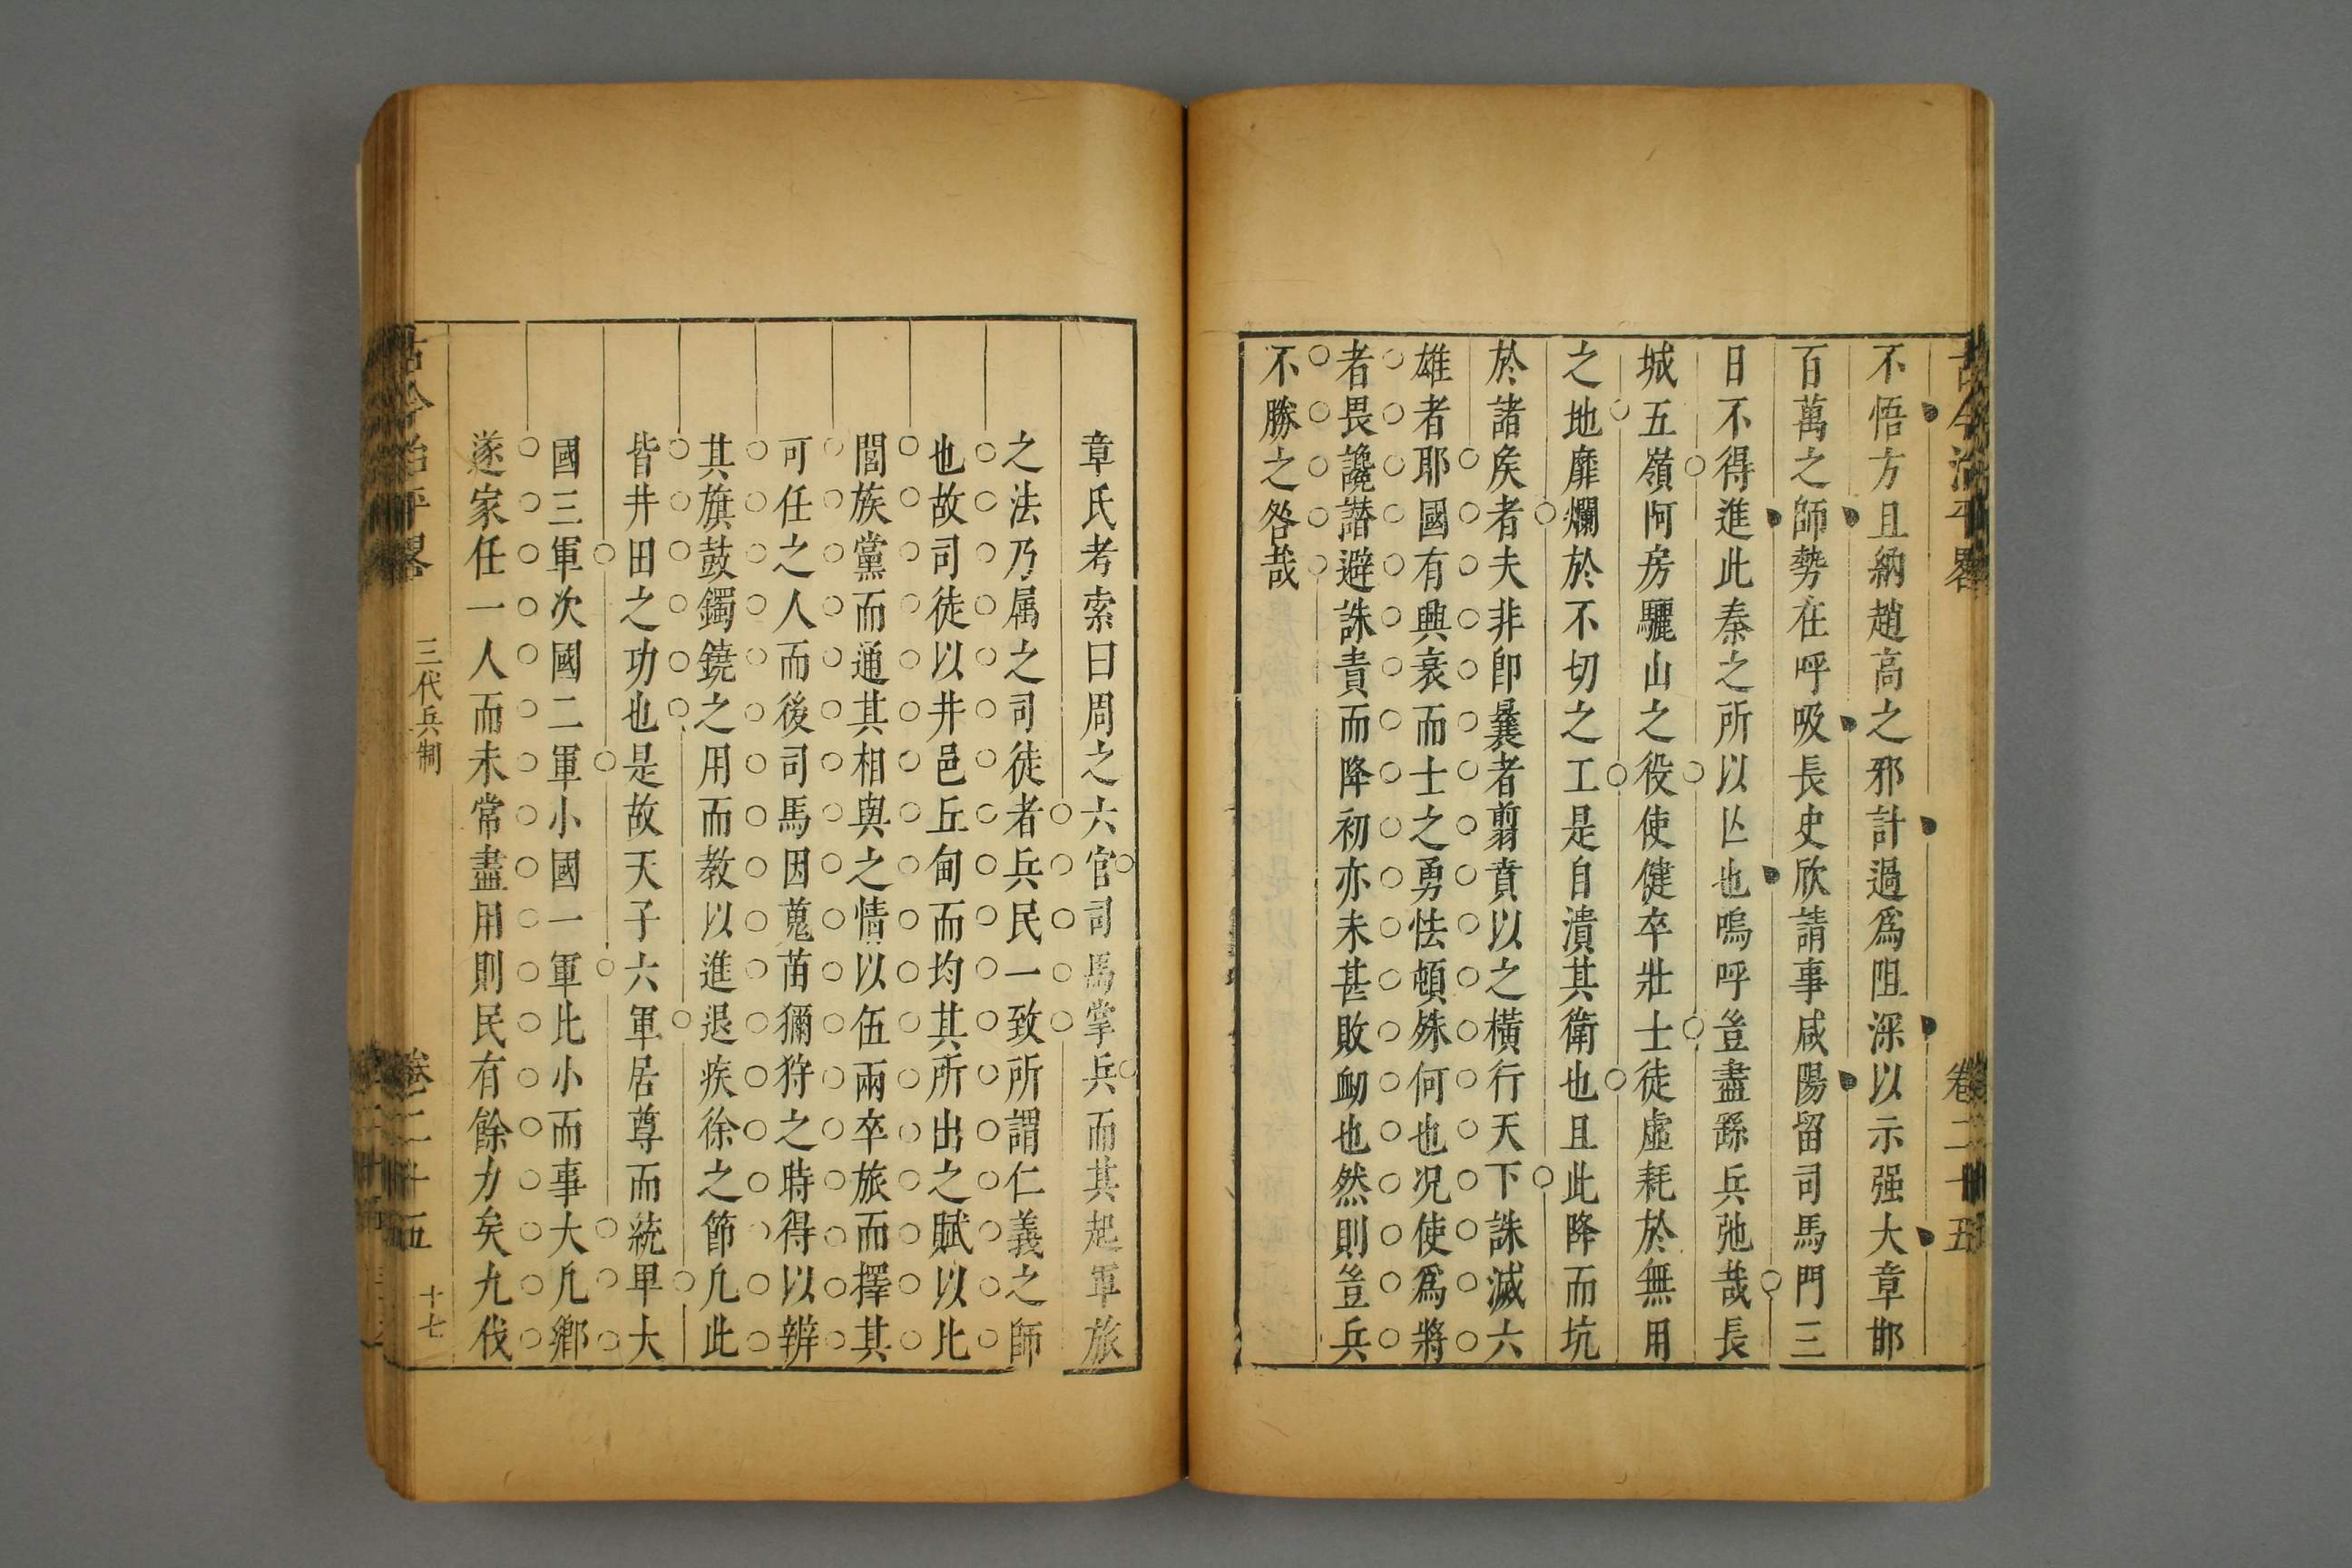 古今治平畧
卷二十五
不悟方且納趙高之邪計過爲阻深以示强大章邯
百萬之師勢在呼吸長史欣請事咸陽留司馬門三
日不得進此秦之所以亾也嗚呼豈盡繇兵弛哉長
城五嶺阿房驪山之役使健卒壯士徒虛耗於無用
之地靡爛於不切之工是自潰其衛也且此降而坑
於諸矦者夫非卽曩者翦賁以之橫行天下誅滅六
雄者耶國有興衰而士之勇怯頓殊何也况使爲將
者畏讒譖避誅責而降初亦未甚敗衂也然則豈兵
不勝之咎哉
章氏考索曰周之六官司馬掌兵而其起軍旅
之法乃属之司徒者兵民一致所謂仁義之師
也故司徒以井邑丘甸而均其所出之賦以比
閭族黨而通其相與之情以伍兩卒旅而擇其
可任之人而後司馬因蒐苗獮狩之時得以辨
其旗鼓鐲鐃之用而教以進退疾徐之節凢此
皆井田之功也是故天子六軍居尊而統畢大
國三軍次國二軍小國一軍比小而事大凢鄉
遂家任一人而未常盡用則民有餘力矣九伐
古今治平畧
三代兵制
卷二十五
十七